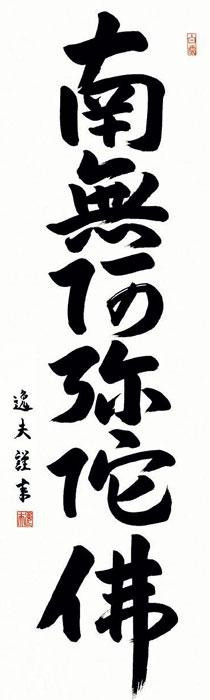 南無阿弥陀佛
逸夫謹書